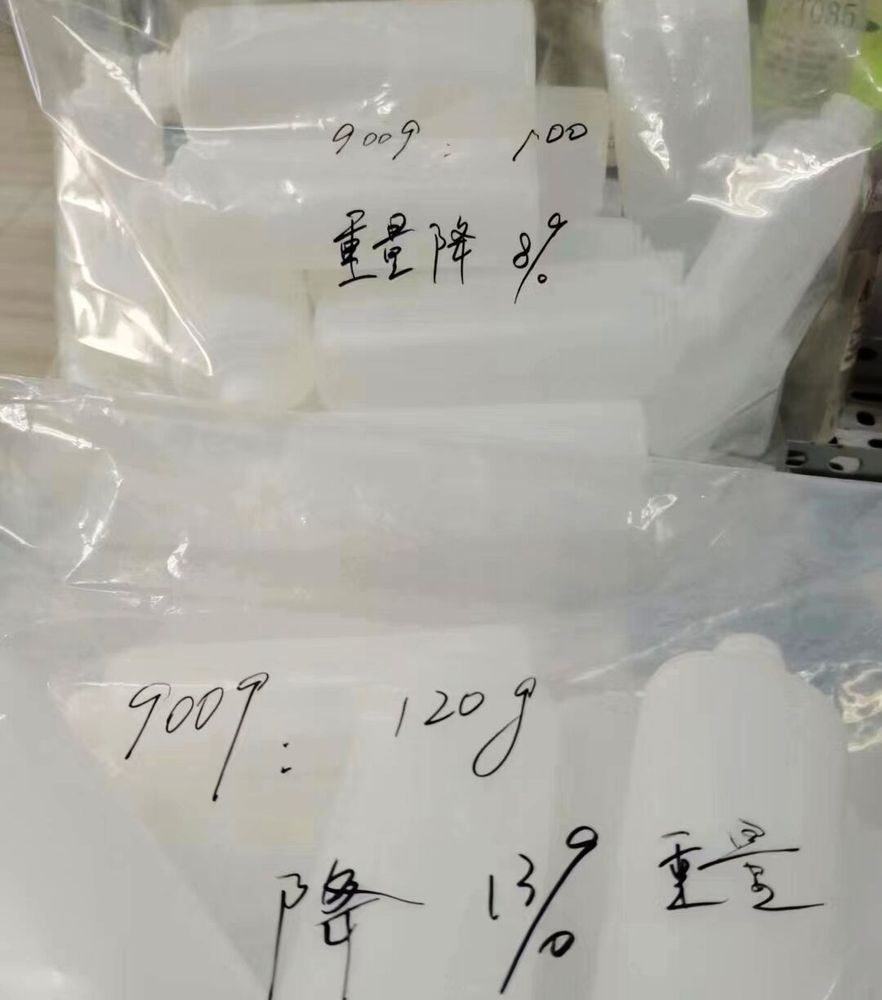 1085
900g: 100
重量降 8%
900g: 120g
降 13% 重量